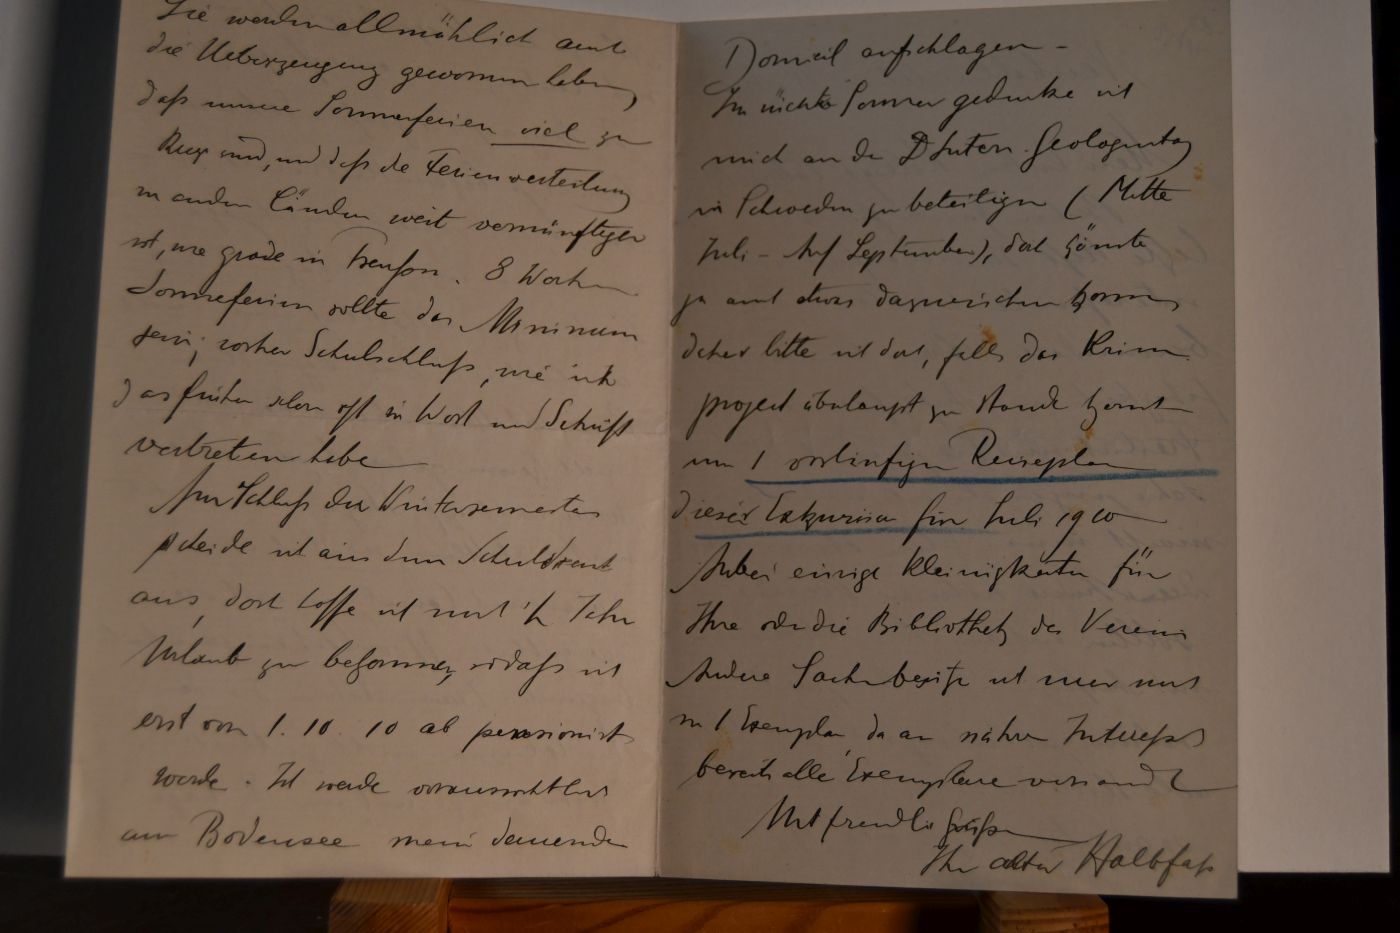 Sie werden allmählich auch
die Ueberzeugung gewonnen haben,
daß unsere Sommerferien viel zu
kurz sind, und daß die Ferienverteilung
in andern Ländern weit vernünftiger
ist, wie grade in Preußen. 8 Wochen
Sommerferien sollte das Minimum
sein; vorher Schulschluß, wie ich
das früher schon oft in Wort und Schrift
vertreten habe
Am Schluß des Wintersemesters
scheide ich aus dem Schuldienst
aus, doch hoffe ich noch ½ Jahr
Urlaub zu bekommen, sodaß ich
erst vom 1. 10. 10 ab pensioniert
werde. Ich werde voraussichtlich
am Bodensee mein dauerndes
Domicil aufschlagen –
Im nächsten Sommer gedenke ich
mich an dem Intern. Geologentag
in Schweden zu beteiligen (Mitte
Juli – Anf September), doch könnte
ja auch etwas dazwischen kommen,
daher bitte ich doch, falls das Krim
projekt überhaupt zu stande kommt
um 1 vorläufigen Reiseplan
dieser Exkursion für Juli 1910
Anbei einige Kleinigkeiten für
Ihre oder die Bibliothek des Vereins
Andere Sachen besitze ich nur noch
in 1 Exemplar, da an nähere
bereits alle Exemplare versandt
Mit freundl. Grüßen
Ihr alter Halbfaß